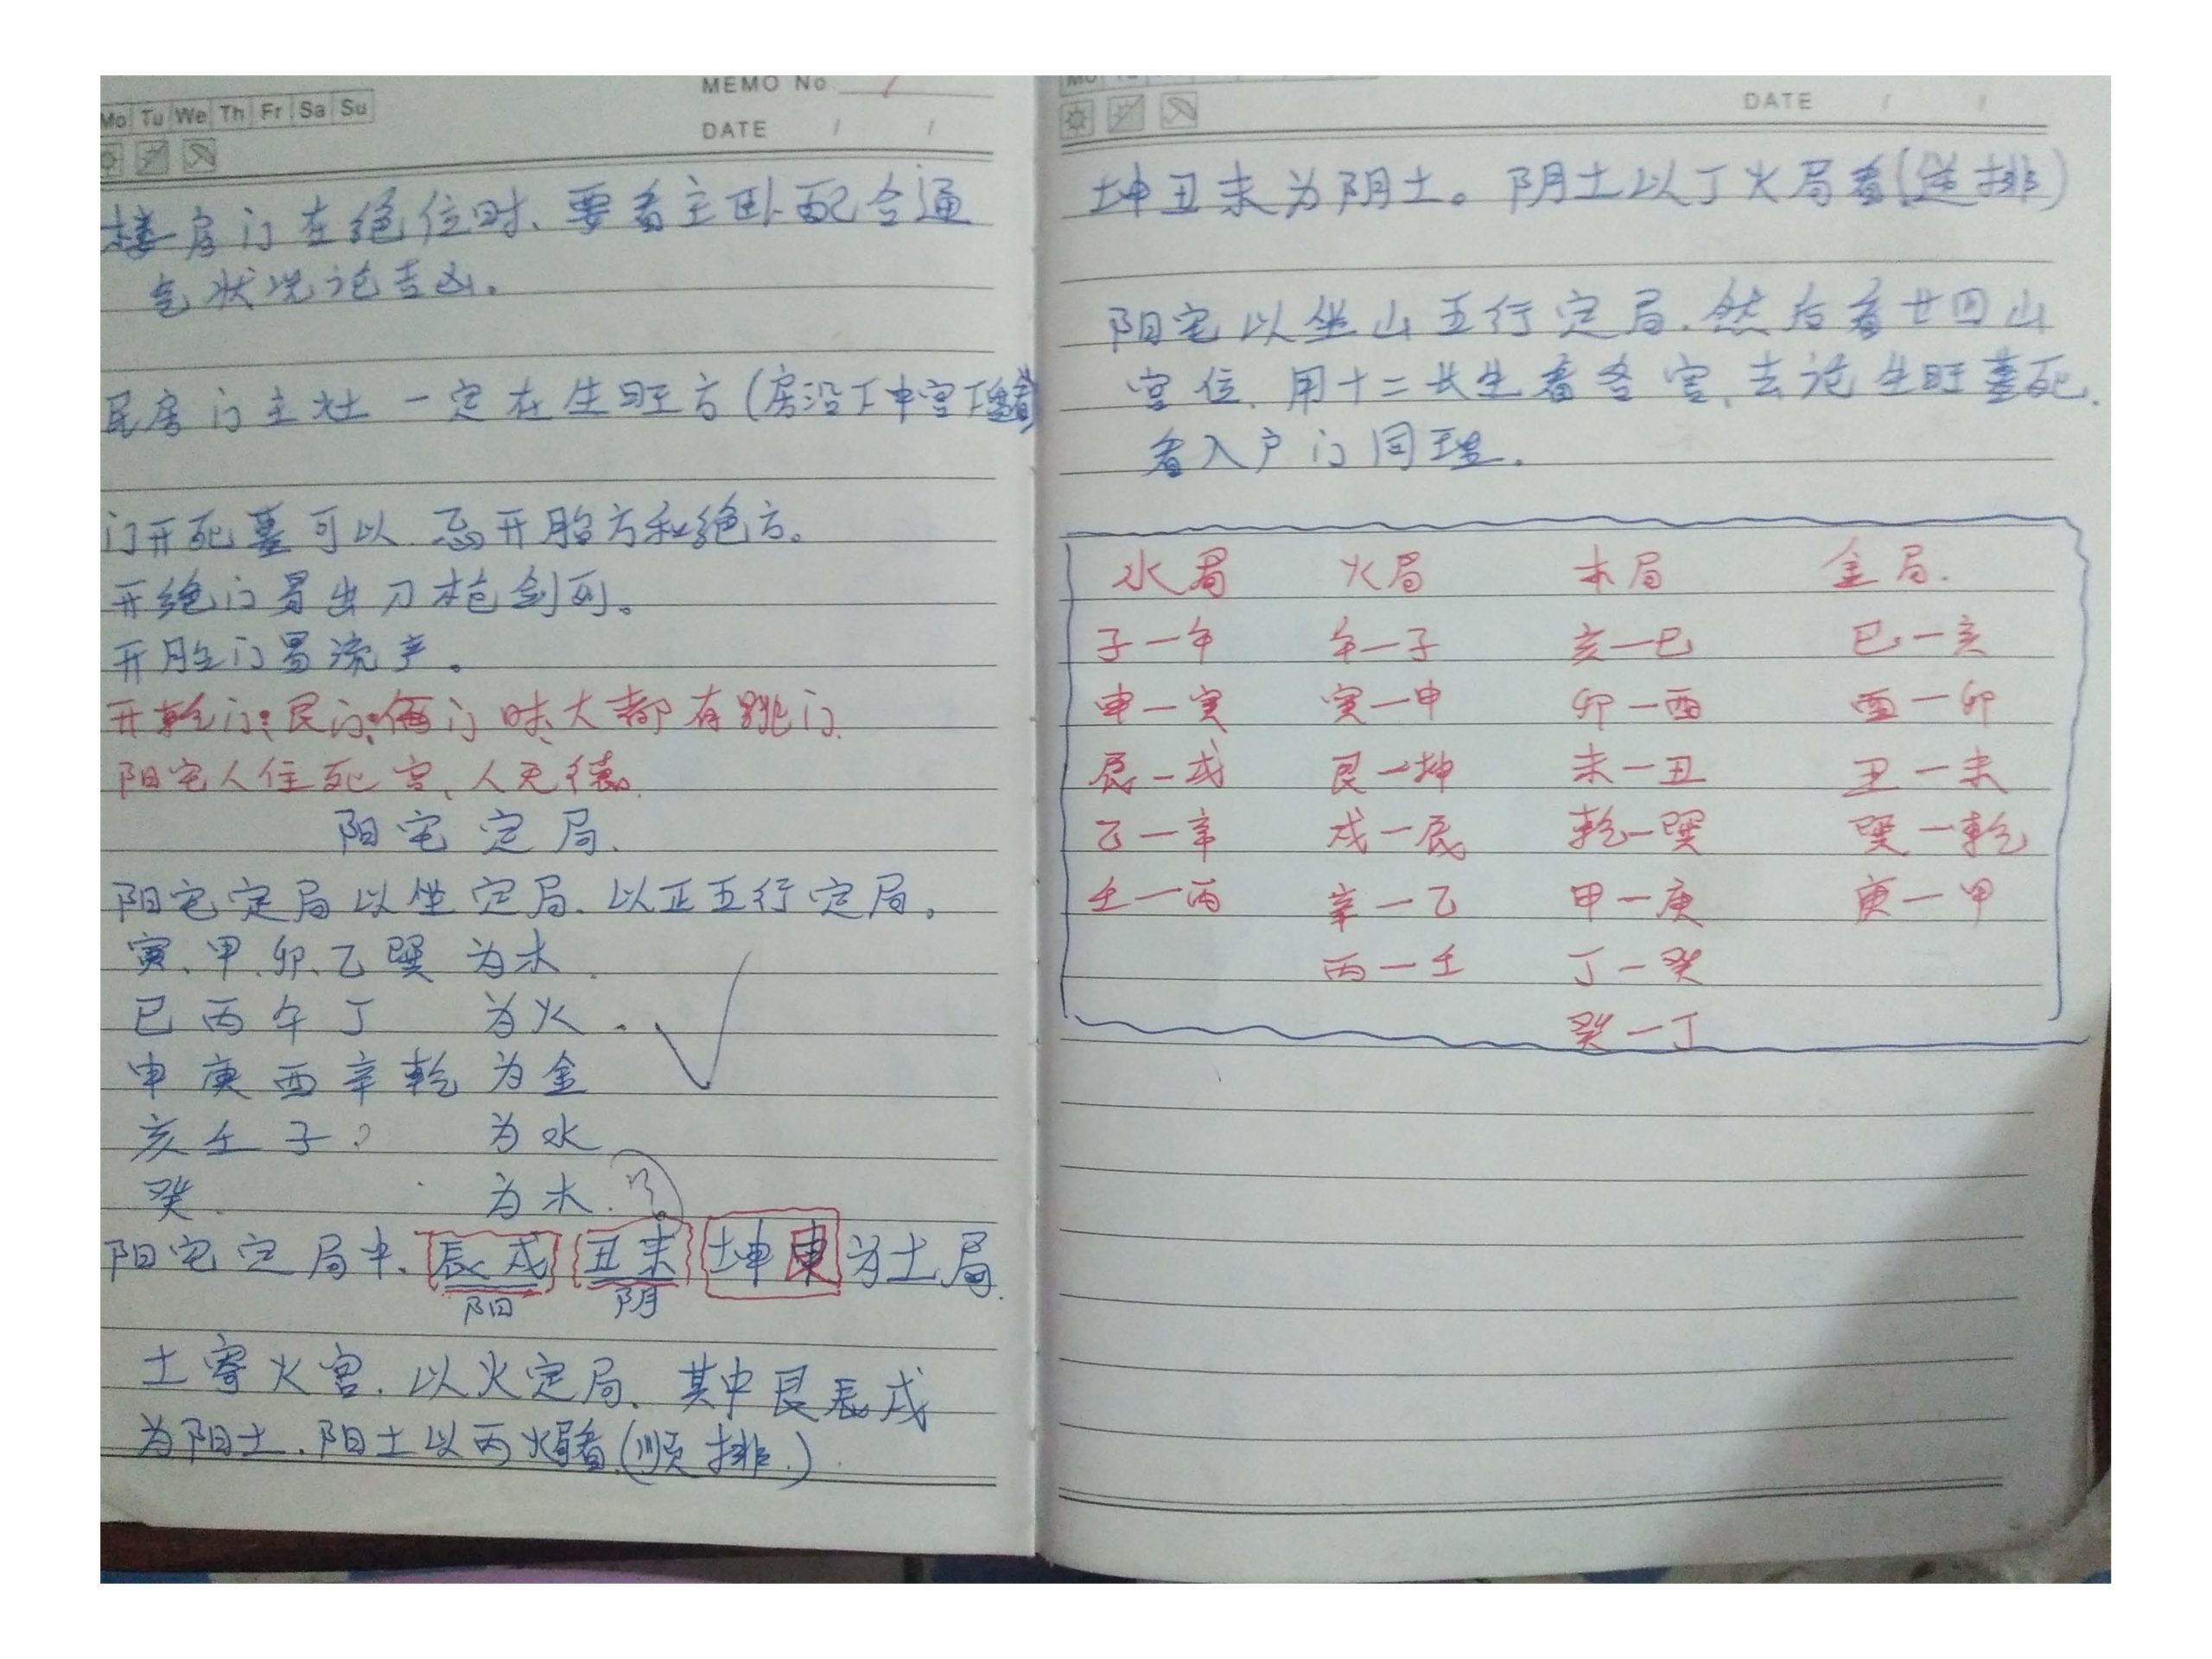 MEMO No
Mo Tu We Th Fr Sa Su
DATE / /
楼房门在绝位时、要看主卧配合通
气状况论吉凶.
民房门主灶一定在生旺方(房没丁中宫丁
门开死墓可以.忌开胎方和绝方。
开绝门易出刀枪剑刑。
开胎门易流产。
开乾门:艮门:俩门时、大都有跳门.
阳宅人住死宫、人无德.
阳宅定局.
阳宅定局以坐定局.以正五行定局。
寅、甲.卯、乙巽为木.
巳丙午丁 为火.
申庚酉辛乾为金
亥壬子? 为水
癸. 为木.?
阳宅定局中.辰戌丑未坤 为土局.
阳 阴
土寄火宫.以火定局.其中艮辰戌
为阳土.阳土以丙火局看(顺排.)
DATE / /
坤丑未为阴土。阴土以丁火局看(逆排)
阳宅以坐山五行定局.然后看廿四山
宫位.用十二长生看各宫、去论生旺墓死.
看入户门同理.
水局 火局 木局 金局.
子一午 午一子 亥一巳 巳一亥
申一寅 寅一申 卯一酉 酉一卯
辰一戌 艮一坤 未一丑 丑一未
乙一辛 戌一辰 乾一巽 巽一乾
壬一丙 辛一乙 甲一庚 庚一甲
丙一壬 丁一癸
癸一丁